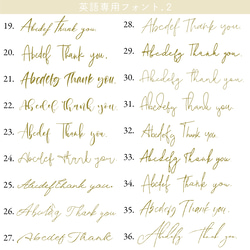 英語専用フォント.2
19. Abcdef Thank you.
20. Abcdef Thank you.
21. Abcdefg Thank you
22. Abcdef Thank you.
23. Abcdef Thank you.
24. Abcdef Thank you
25. Abcdef Thank you.
26. Abcdefg Thank you
27. Abcdef Thank
28. Abcdef Thank you.
29. Abcdefg Thank you.
30. Abcdefg Thank you
31. Abcdefg Thank you
32. Abcdef Thank you
33. Abcdefg Thank you
34. Abcdef Thank you
35. Abcdef Thank you.
36. Abcdef Thank you.